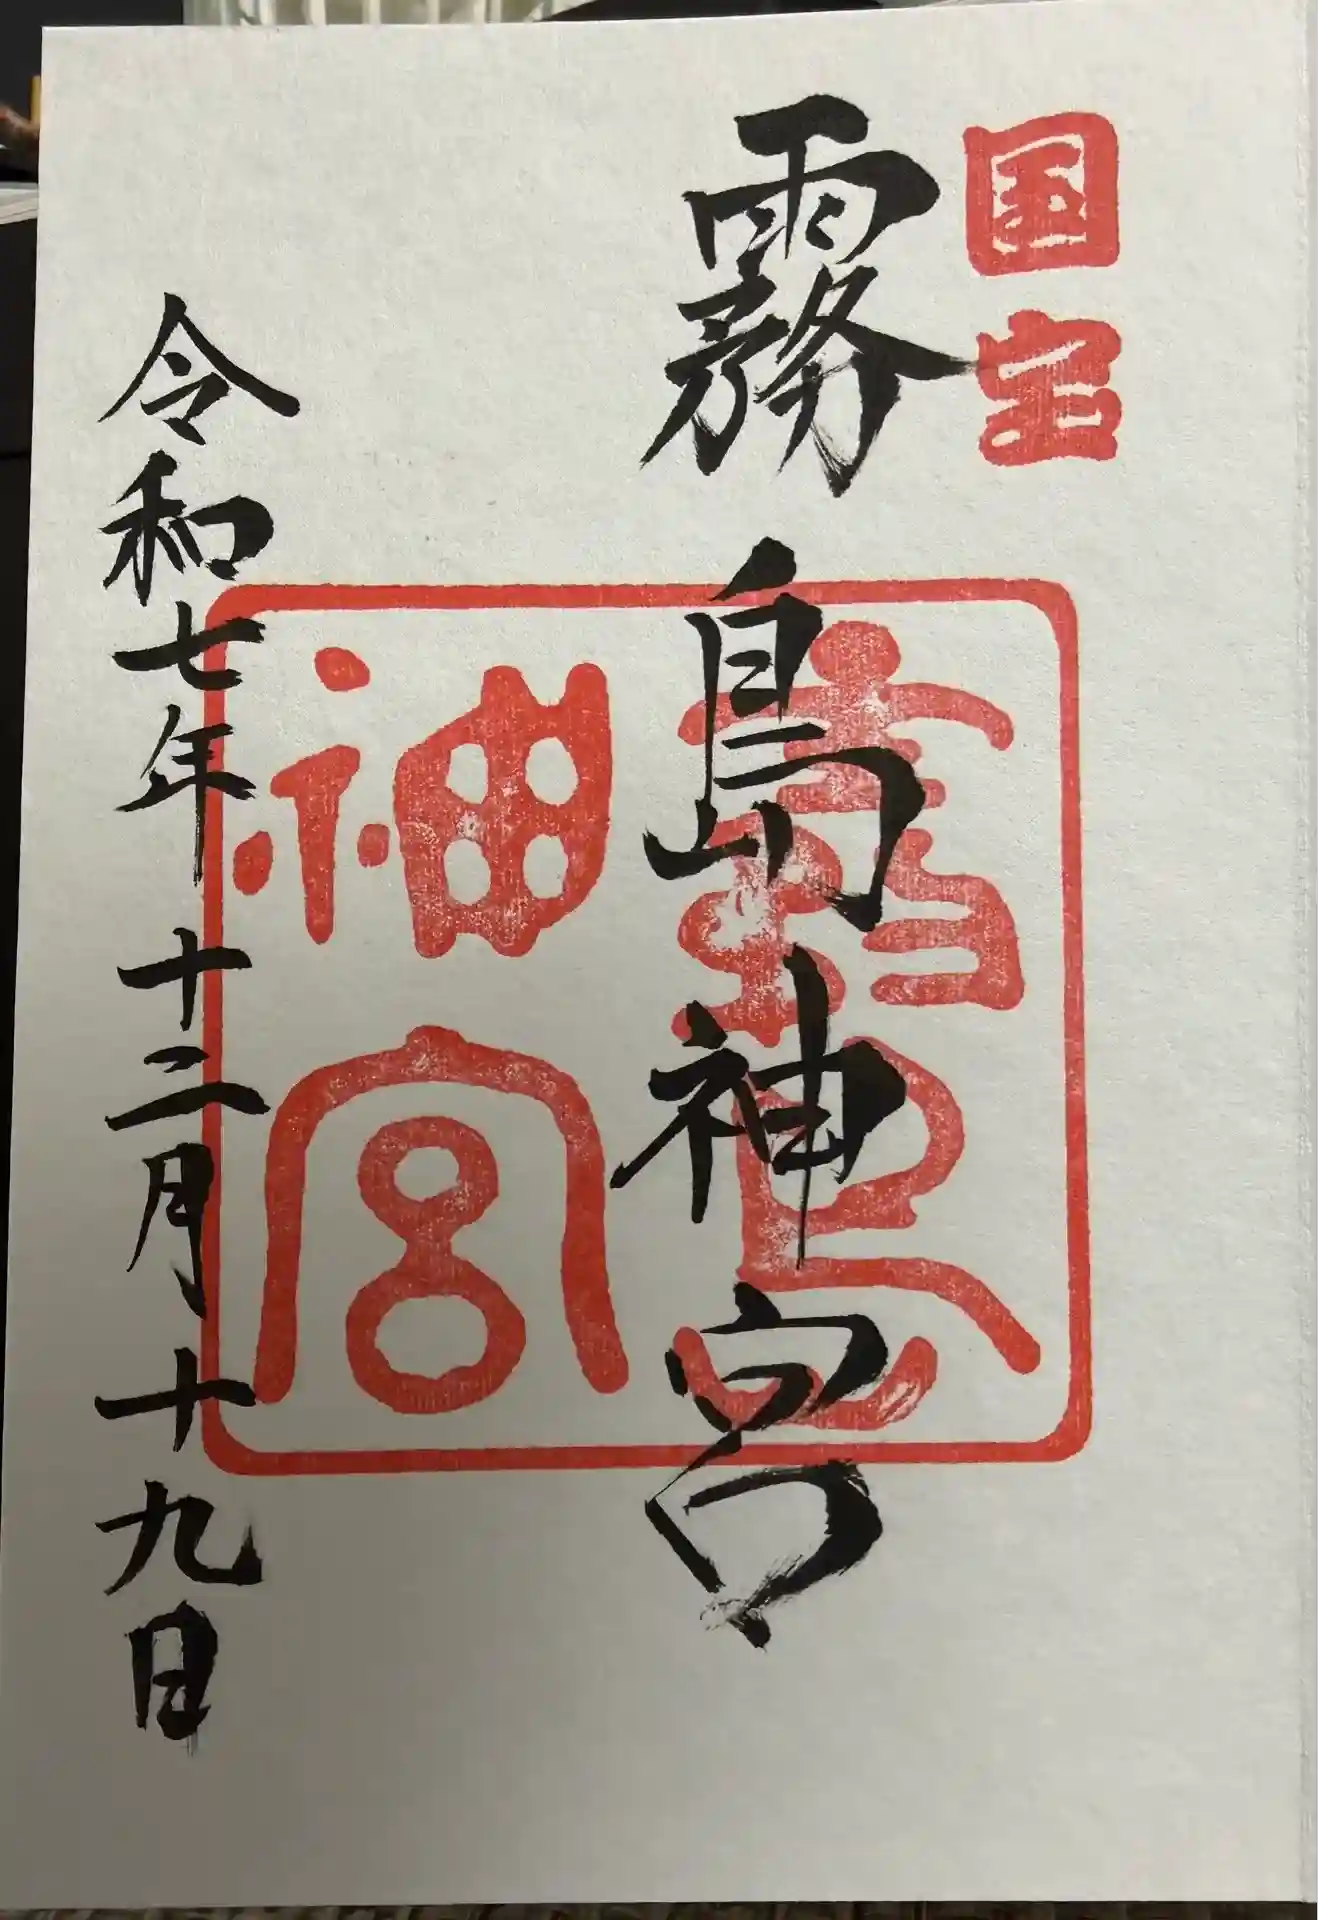 国宝
霧島神宮
霧島神宮
令和七年十二月十九日